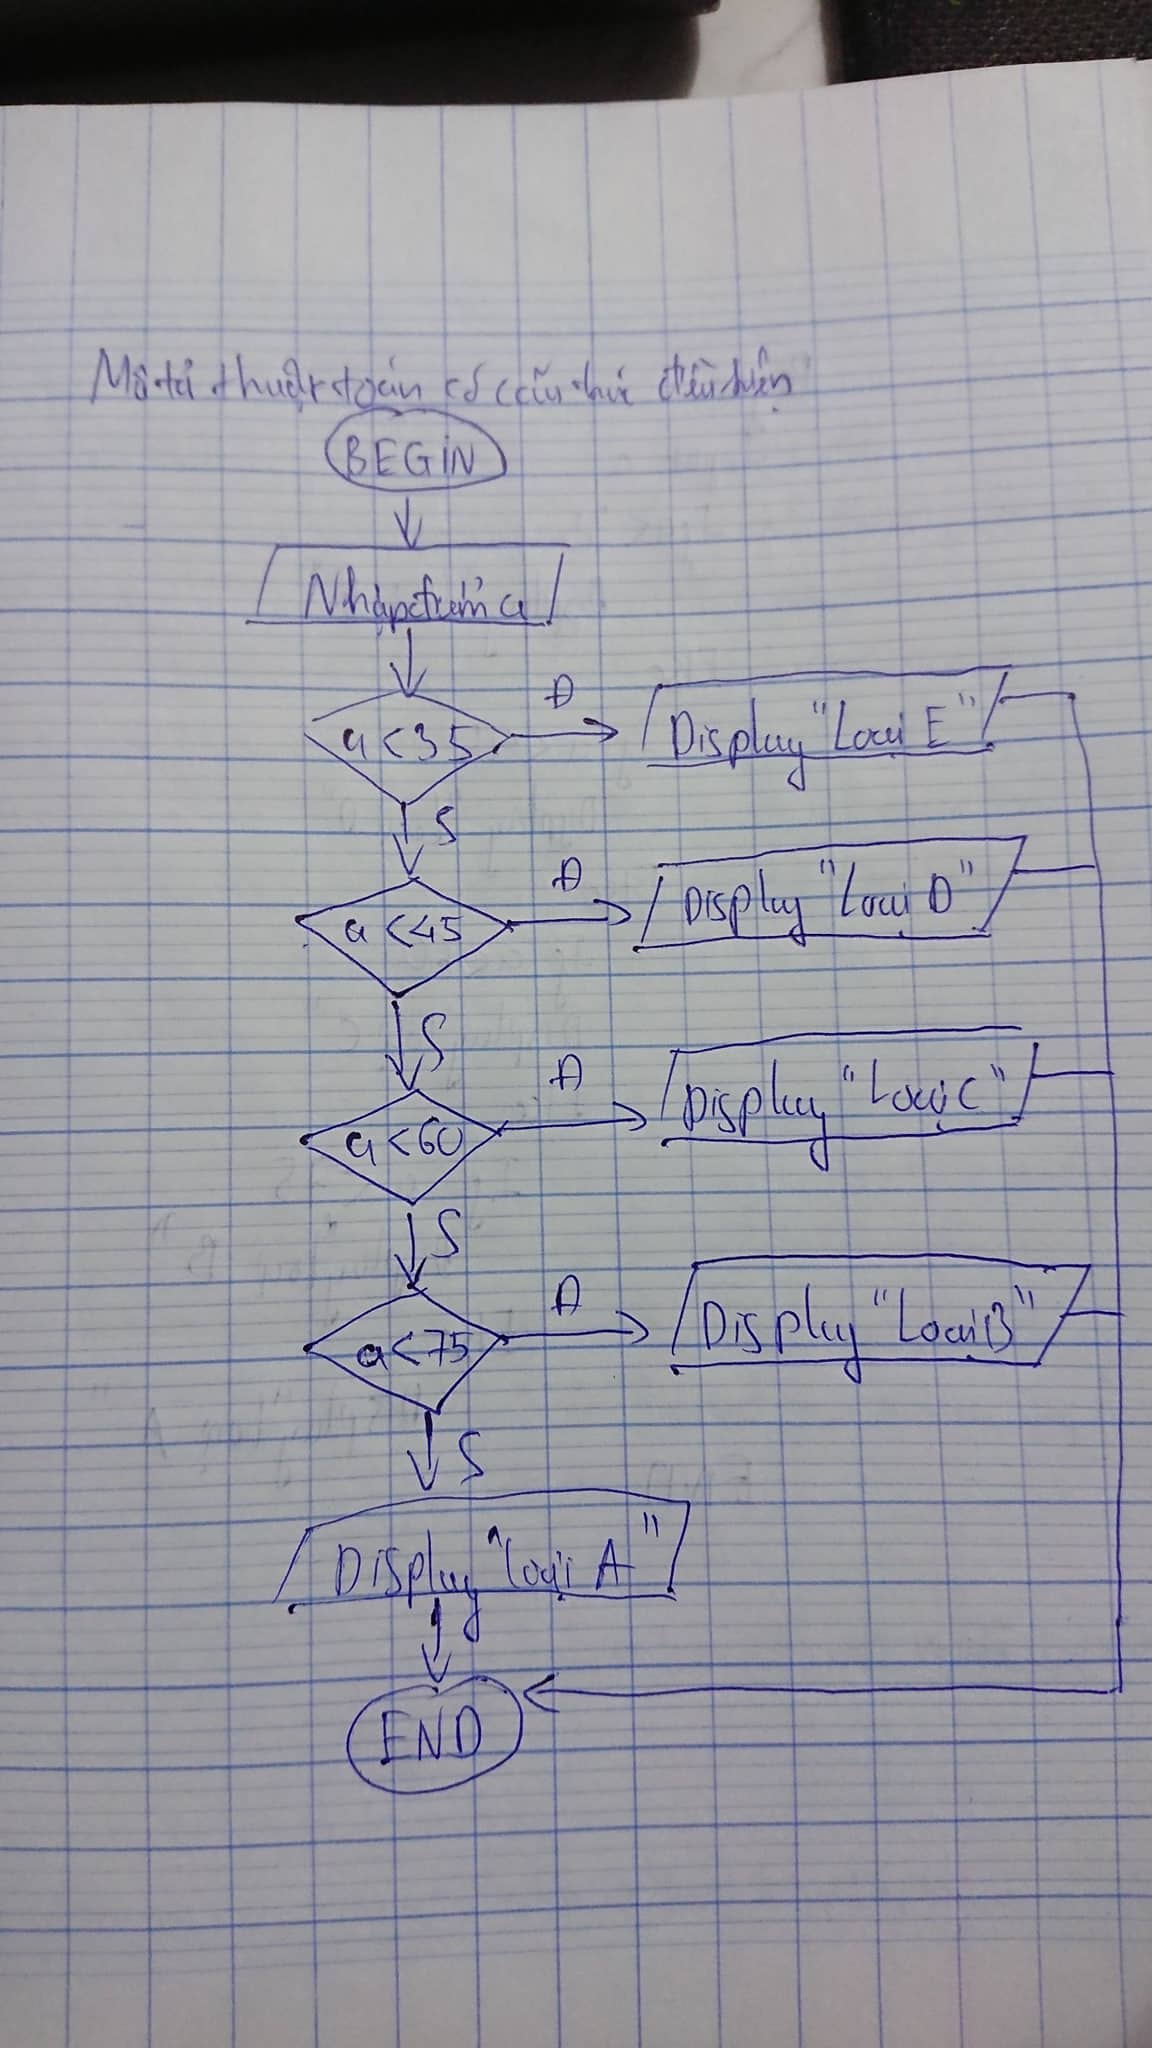 Mô tả thuật toán có cấu trúc điều kiện
BEGIN
Nhập điểm a
a < 35
Đ
Display "Loại E"
S
a < 45
Đ
Display "Loại D"
S
a < 60
Đ
Display "Loại C"
S
a < 75
Đ
Display "Loại B"
S
Display "Loại A"
END